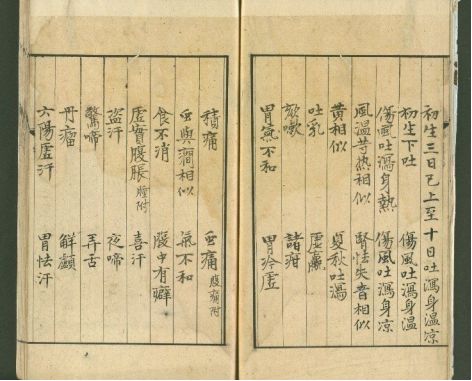 初生三日已上至十日吐瀉身温凉
初生下吐　傷風吐瀉身温
傷風吐瀉身熱　傷風吐瀉身凉
風温熱相似　腎怯失音相似
黄相似　夏秋吐瀉
吐乳　虛羸
欬嗽　諸疳
胃氣不和　胃冷虛
積痛　虫痛 腹痛附
虫與癎相似　氣不和
食不消　腹中有癖
虛實腹脹 腫附　喜汗
盗汗　夜啼
驚啼　弄舌
丹瘤　解顱
六陽虛汗　胃怯汗